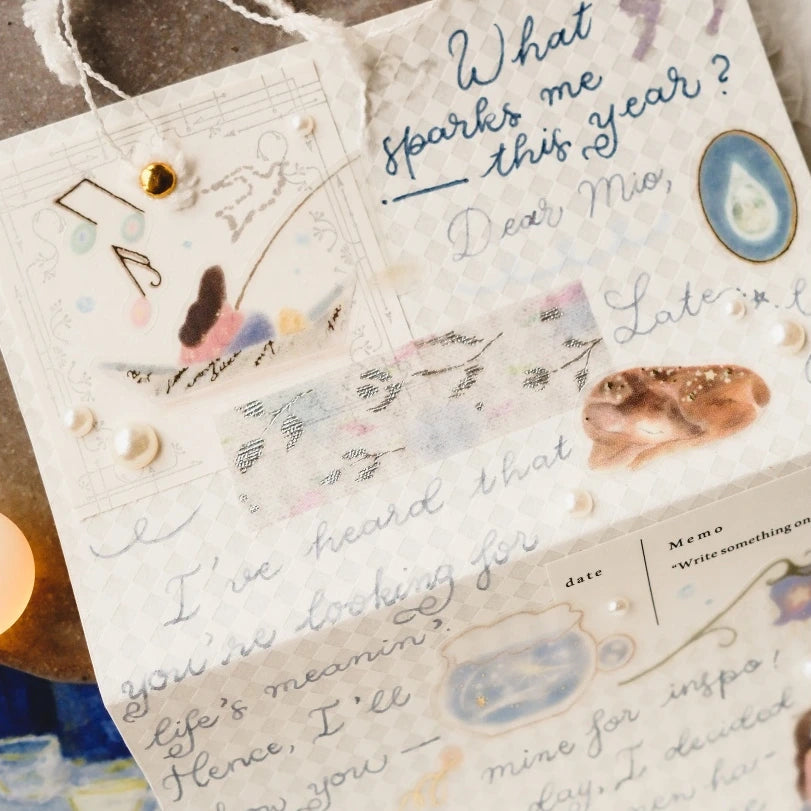 What
sparks me
— this year?
Dear Mio,
Late
I've heard that
you're looking for
life's meanin'.
Hence, I'll
you —
date
Memo
"Write something on
mine for inspo!
day, I decided